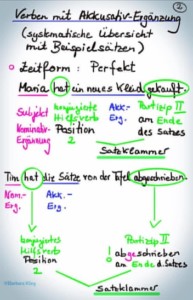 ②
Verben mit Akkusativ-Ergänzung
(systematische Übersicht
mit Beispielsätzen)
Zeitform: Perfekt
Maria hat ein neues Kleid gekauft.
Subjekt konjugiertes Akk.- Partizip II
Nominativ- Hilfsverb Erg. am Ende
Ergänzung Position des Satzes
2
Satzklammer
Tim hat die Sätze von der Tafel abgeschrieben.
Nom.- Akk.
Erg. Erg.
konjugiertes Partizip II
Hilfsverb ! abgeschrieben
Position am Ende d. Satzes
2
Satzklammer